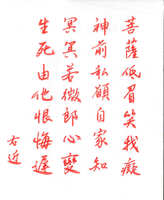 菩薩低眉笑我癡
神前私願自家知
冥冥若徵郎心變
生死由他恨悔遲
右近